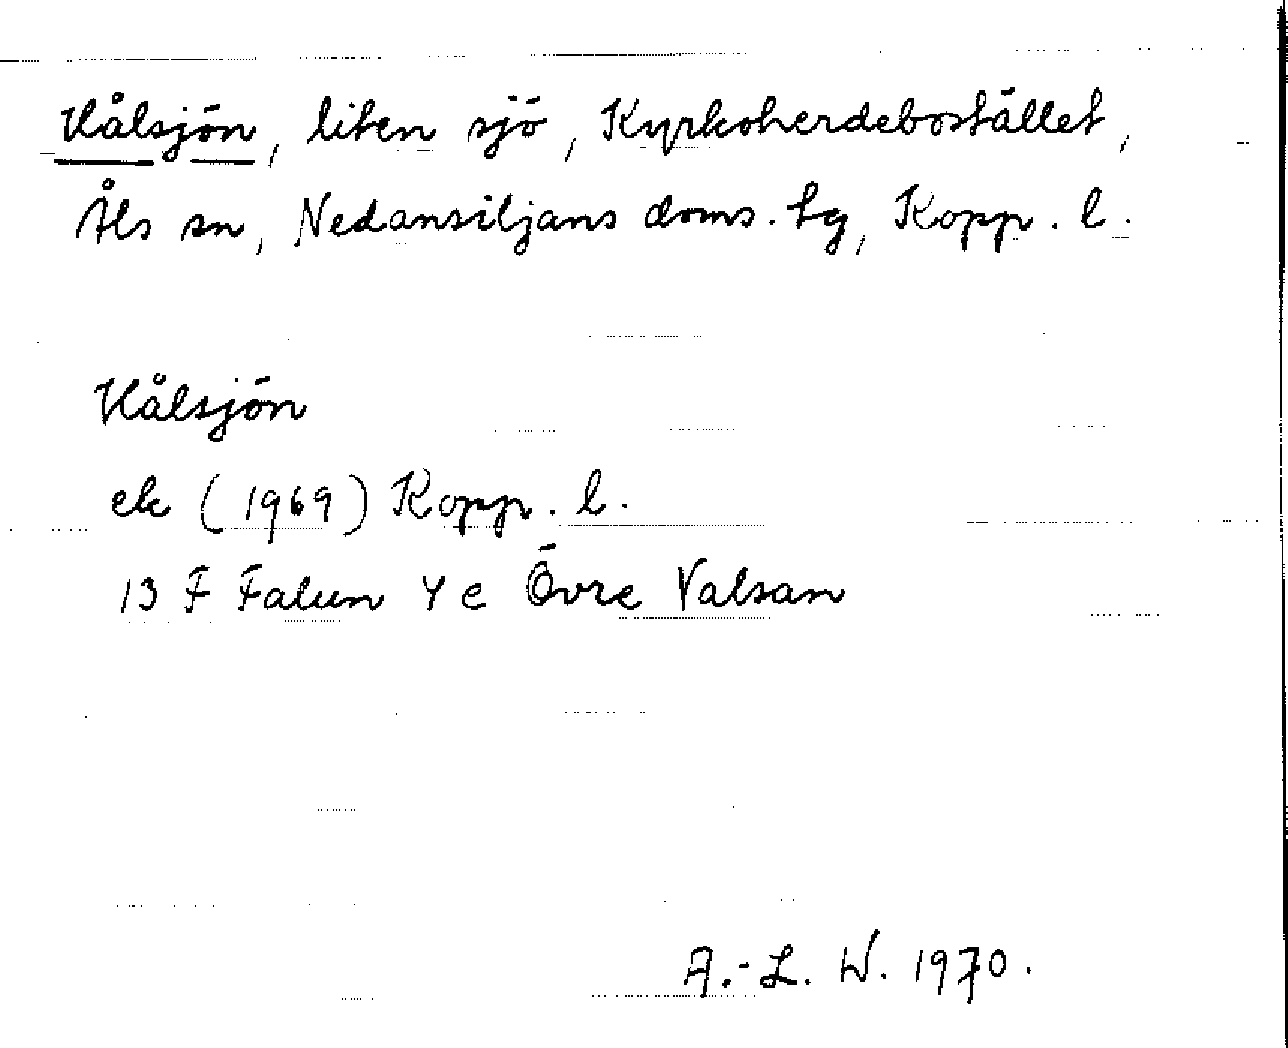 Hålsjön, liten sjö, Kyrkoherdebostället,
Åls sn, Nedansiljans doms. tg, Kopp. l.
Hålsjön
ek (1969) Kopp. l.
13 F Falun 4 c Övre Valsan
A.-L. W. 1970.